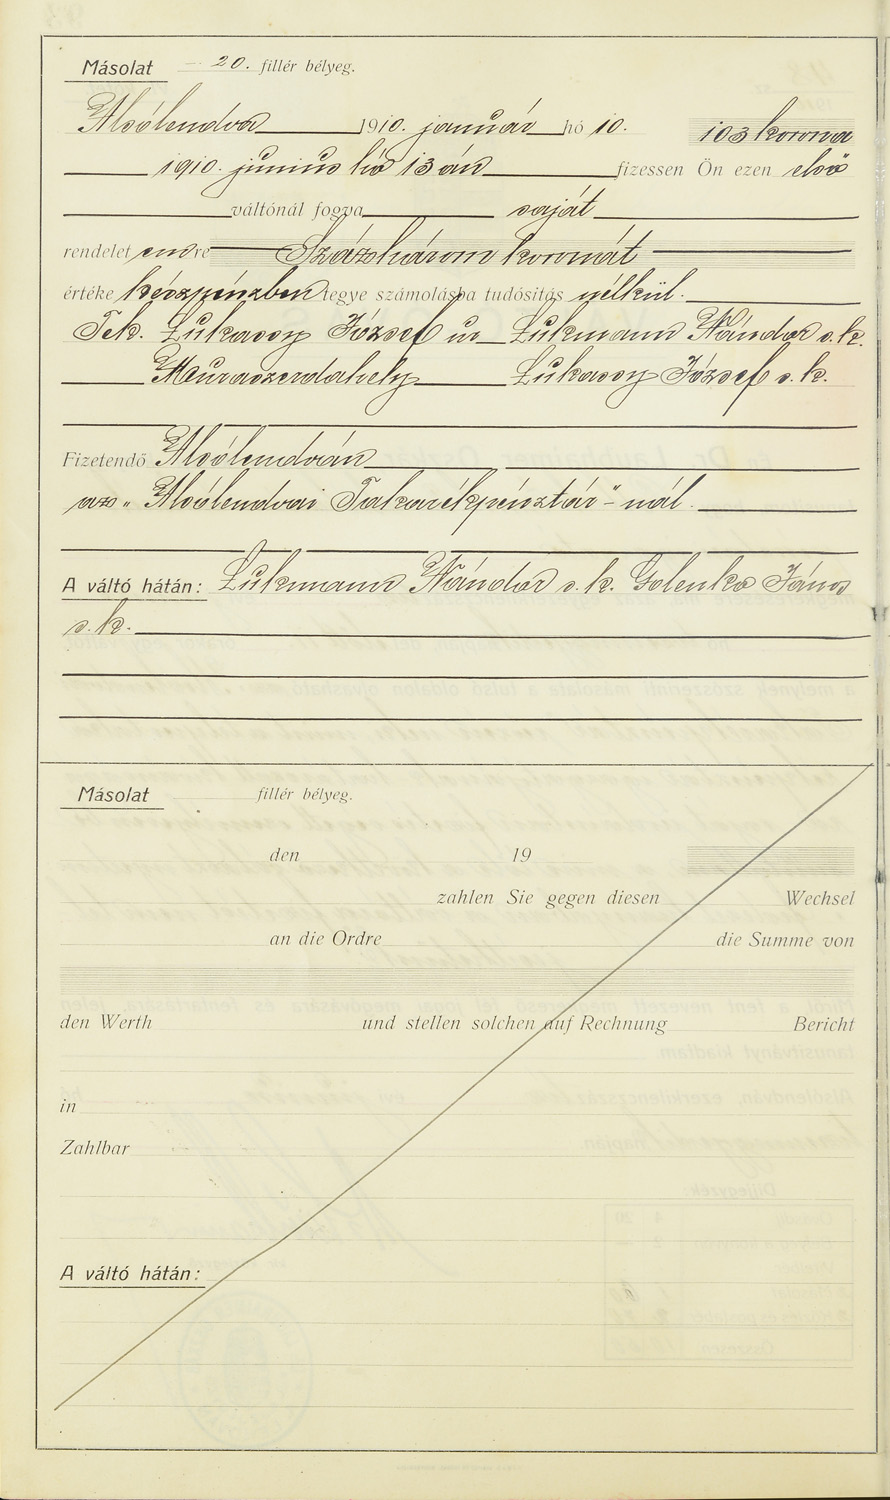 Másolat 20. fillér bélyeg.
Alsólendva 1910. január hó 10. 103 korona
1910. junius hó 13 án fizessen Ön ezen első
váltónál fogva saját
rendeletemre Százhárom koronát
értéke készpénzben tegye számolásba tudósítás nélkül.
Tek. Lukassy József ur Lukmann Nándor s. k.
Muraszerdahely Lukassy József s. k.
Fizetendő Alsólendván
az „Alsólendvai Takarékpénztár"-nál.
A váltó hátán: Lukmann Nándor s. k. Golenko János
s. k.
Másolat fillér bélyeg.
den 19
zahlen Sie gegen diesen Wechsel
an die Ordre die Summe von
den Werth und stellen solchen auf Rechnung Bericht
in
Zahlbar
A váltó hátán: